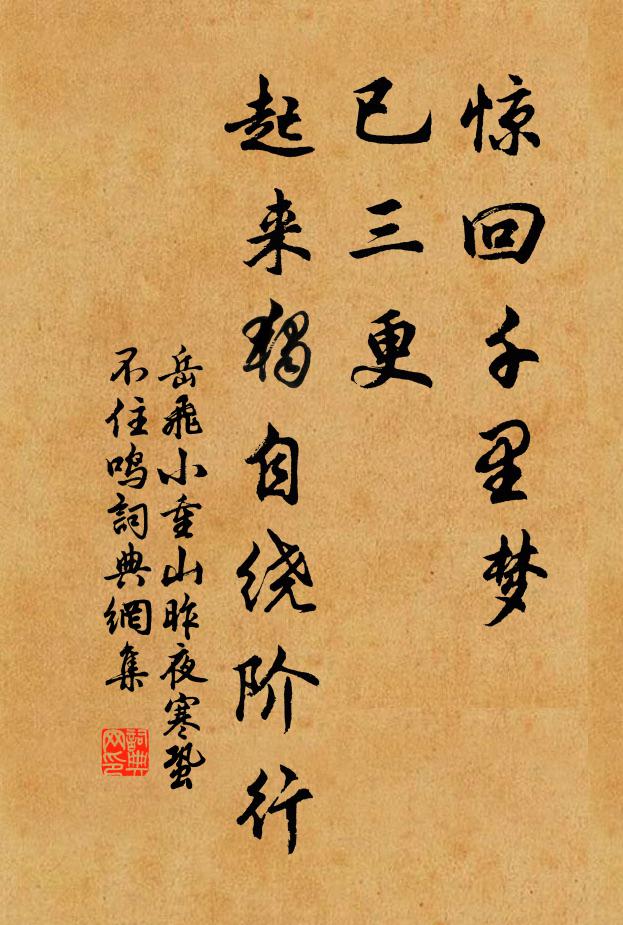 惊回千里梦
已三更
起来独自绕阶行
岳飛小重山昨夜寒蛩
不住鳴詞典網集
詞典
网印